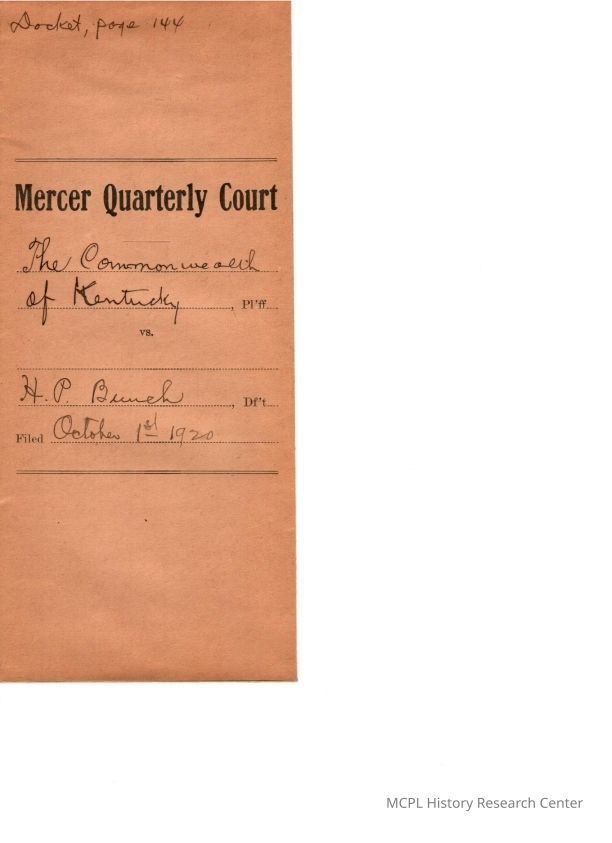 Docket, page 144
Mercer Quarterly Court
The Commonwealth
of Kentucky, Pl'ff
vs.
H. P. Bunch, Df't
Filed October 1st 1920
MCPL History Research Center